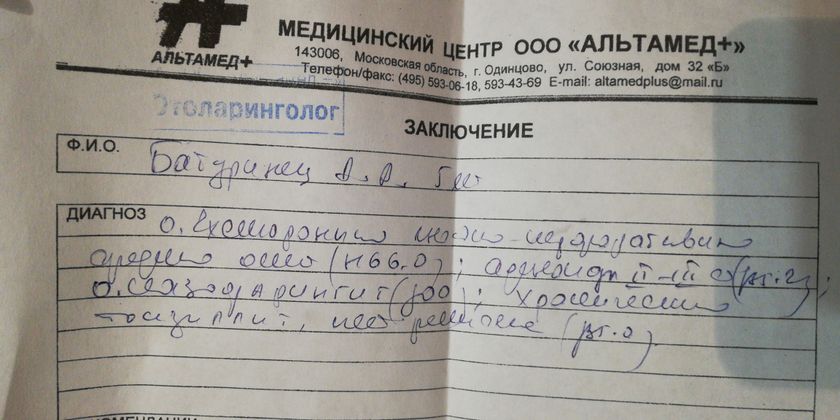 АЛЬТАМЕД+
МЕДИЦИНСКИЙ ЦЕНТР ООО «АЛЬТАМЕД+»
143006, Московская область, г. Одинцово, ул. Союзная, дом 32 «Б»
Телефон/факс: (495) 593-06-18, 593-43-69 E-mail: altamedplus@mail.ru
Отоларинголог
ЗАКЛЮЧЕНИЕ
Ф.И.О. Батуринец А.А. 5 лет
ДИАГНОЗ о.
средний отит (H66.0); аденоиды II-III с (J35.2);
о. назофарингит (J00); хронический
тонзиллит, ремиссия (J35.0)